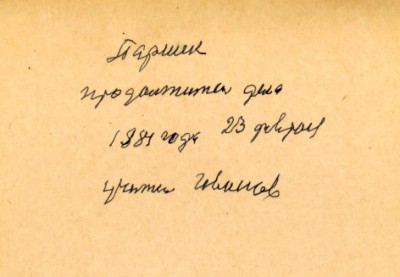 Паршек
продолжател дела
1881 года 23 феврал
учител Иванов